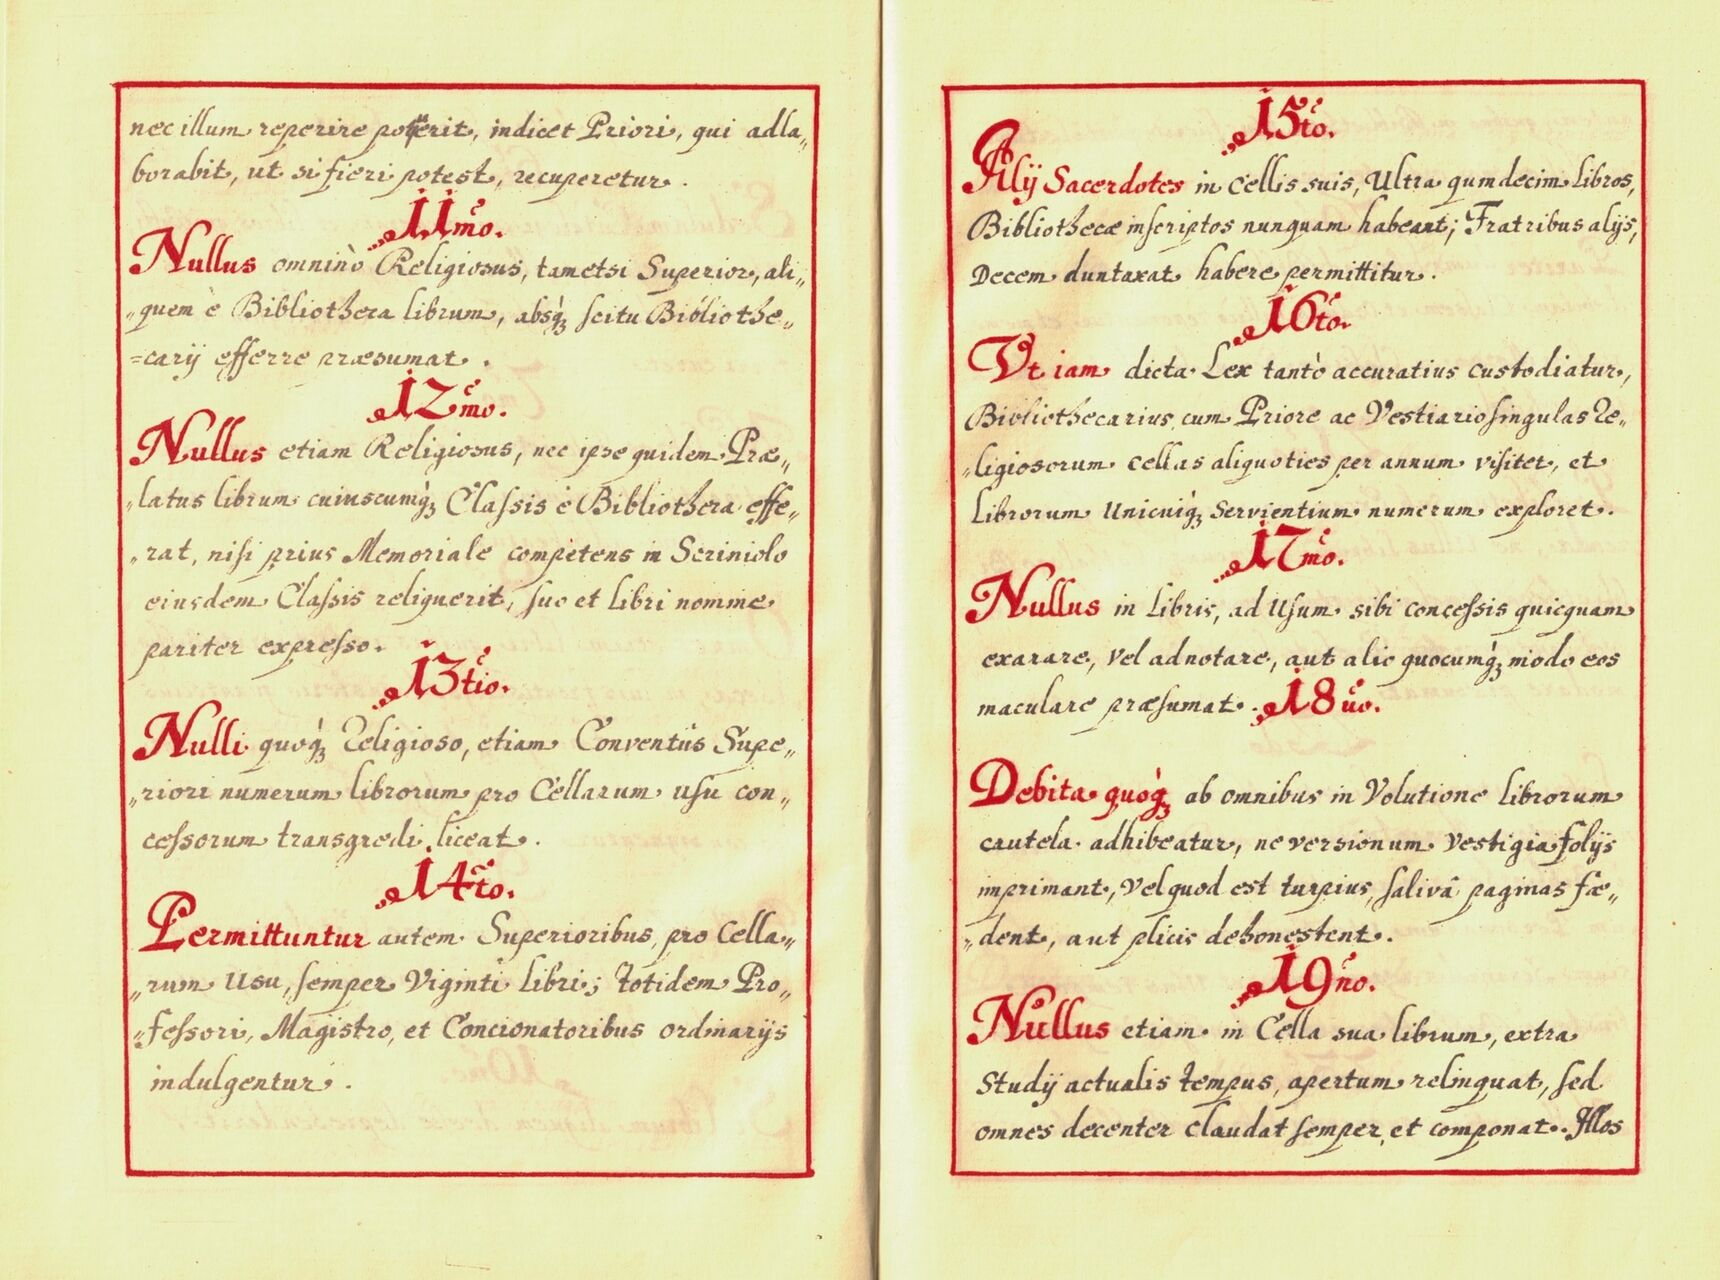 nec illum reperire poterit, indicet Priori, qui adla„
borabit, ut si fieri potest, recuperetur.
11mo.
Nullus omninò Religiosus, tametsi Superior, ali„
„quem è Bibliotheca librum, absq; scitu Bibliothe„
=carij efferre præsumat.
12mo.
Nullus etiam Religiosus, nec ipse quidem Præ„
„latus librum cuiuscumq; Classis è Bibliotheca effe„
„rat, nisi prius Memoriale competens in Scriniolo
eiusdem Classis reliquerit, suo et libri nomine
pariter expresso.
13tio.
Nulli quoq; Religioso, etiam Conventûs Supe„
„riori numerum librorum pro Cellarum usu con„
cessorum transgredi liceat.
14to.
Permittuntur autem Superioribus, pro Cella„
„rum Usu, semper Viginti libri; totidem Pro„
„fessori, Magistro, et Concionatoribus ordinarijs
indulgentur.
15to.
Alij Sacerdotes in Cellis suis, Ultra quindecim Libros,
Bibliothecæ inscriptos nunquam habeant; Fratribus alijs,
Decem duntaxat habere permittitur.
16to.
Vt iam dicta Lex tantò accuratius custodiatur,
Bibliothecarius cum Priore ac Vestiario singulas Re„
„ligiosorum cellas aliquoties per annum visitet, et
Librorum Unicuiq; Servientium numerum exploret.
17mo.
Nullus in Libris, ad Usum sibi concessis quicquam
exarare, vel adnotare, aut alio quocumq; modo eos
maculare præsumat. 18uo.
Debita quoq; ab omnibus in Volutione librorum
cautela adhibeatur, ne versionum vestigia folijs
imprimant, vel quod est turpius, salivâ paginas fæ„
„dent, aut plicis dehonestent.
19no.
Nullus etiam in Cella sua librum, extra
Studij actualis tempus, apertum relinquat, sed
omnes decenter claudat semper, et componat. Illos